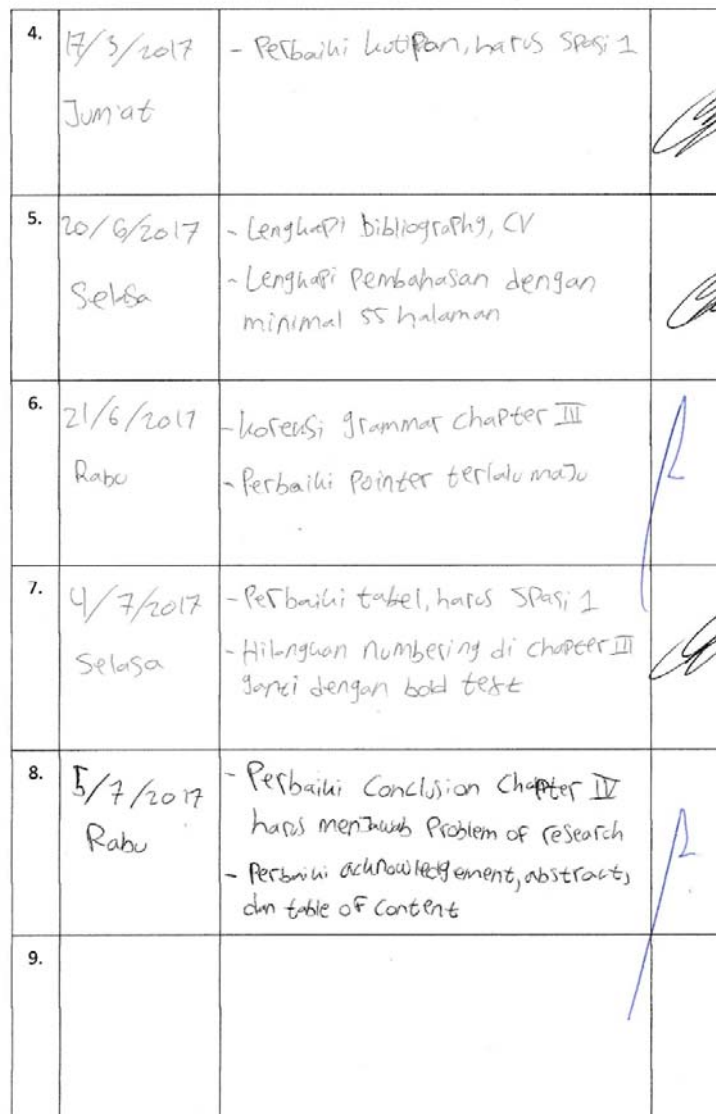 4. 17/3/2017 - Perbaiki kutipan, harus spasi 1
Jum'at
5. 20/6/2017 - Lengkapi bibliography, CV
Selasa - Lengkapi Pembahasan dengan
minimal 55 halaman
6. 21/6/2017 - Koreksi grammar chapter III
Rabu - Perbaiki Pointer terlalu maju
7. 4/7/2017 - Perbaiki tabel, harus spasi 1
Selasa - Hilangkan numbering di chapter III
ganti dengan bold text
8. 5/7/2017 - Perbaiki Conclusion Chapter IV
Rabu harus menjawab Problem of research
- Perbaiki acknowledgement, abstracts,
dan table of content
9.